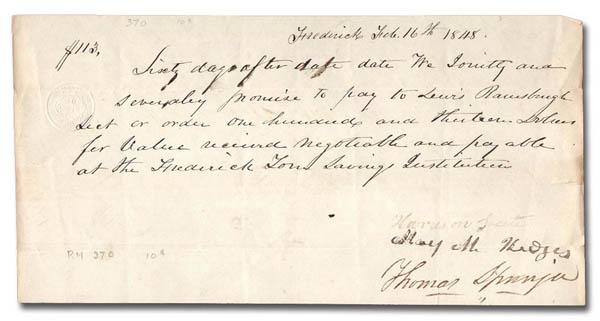 370 10¢
Frederick Feb. 16th 1848.
$113,
Sixty days after date date We Jointly and
severaley promise to pay to Lewis Ramsburgh
Sect or order one hundred and thirteen Dollars
for Value received negotiable and payable
at the Frederick Town Savings Institution
Harrison
M. Hedges
Thomas Springer
RM 370 10¢